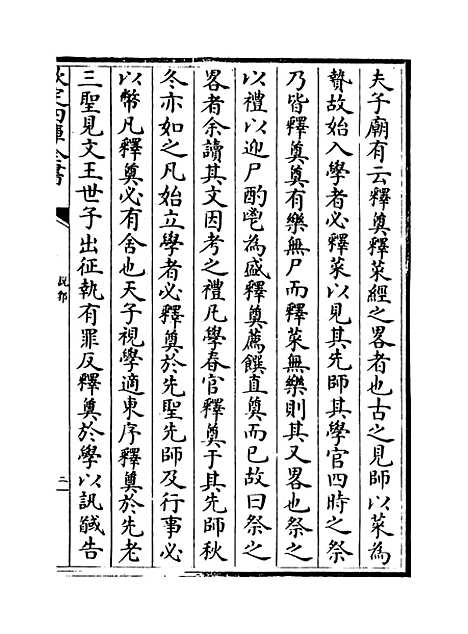 夫子廟有云釋奠釋菜經之畧者也古之見師以菜為
贄故始入學者必釋菜以見其先師其學官四時之祭
乃皆釋奠奠有樂無尸而釋菜無樂則其又畧也祭之
以禮以迎尸酌鬯為盛釋奠薦饌直奠而已故曰祭之
畧者余讀其文因考之禮凡學春官釋奠于其先師秋
冬亦如之凡始立學者必釋奠於先聖先師及行事必
以幣凡釋奠必有舍也天子視學適東序釋奠於先老
三聖見文王世子出征執有罪反釋奠於學以訊馘告
欽定四庫全書
說郛
二